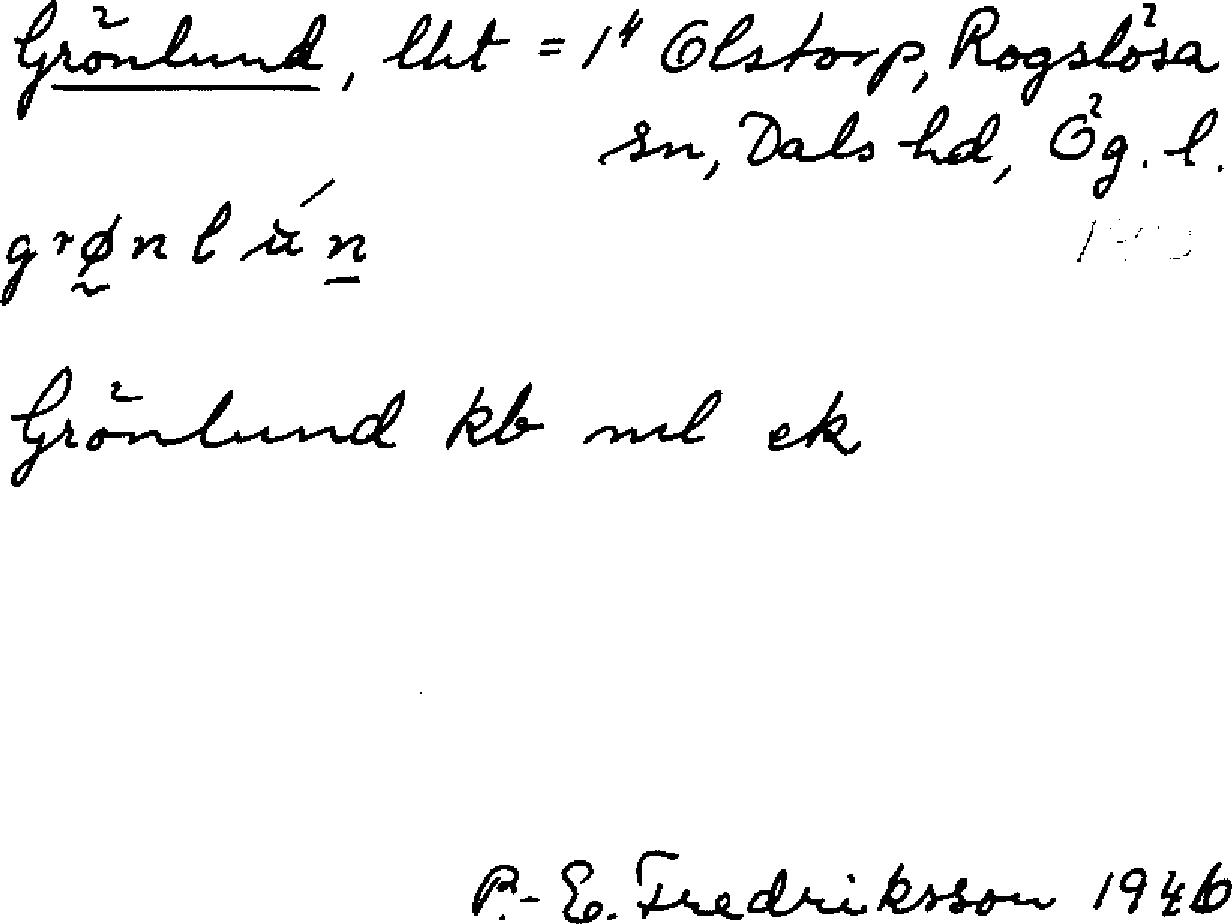 Grönlund, lht = 1⁴ Olstorp, Rogslösa
sn, Dals hd, Ög. l.
grø̰nlú̇n̲
Grönlund kb ml ek
P.-E. Fredriksson 1946